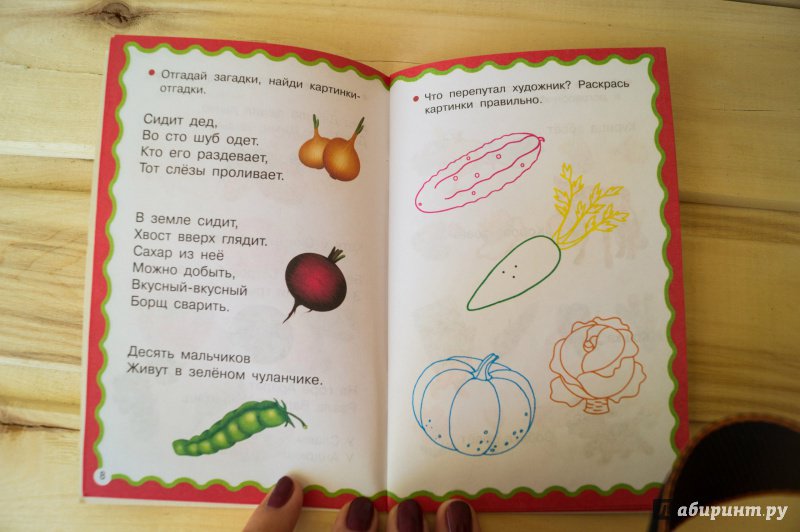 Отгадай загадки, найди картинки-
отгадки.
Сидит дед,
Во сто шуб одет.
Кто его раздевает,
Тот слёзы проливает.
В земле сидит,
Хвост вверх глядит.
Сахар из неё
Можно добыть,
Вкусный-вкусный
Борщ сварить.
Десять мальчиков
Живут в зелёном чуланчике.
8
Что перепутал художник? Раскрась
картинки правильно.
Лабиринт.ру